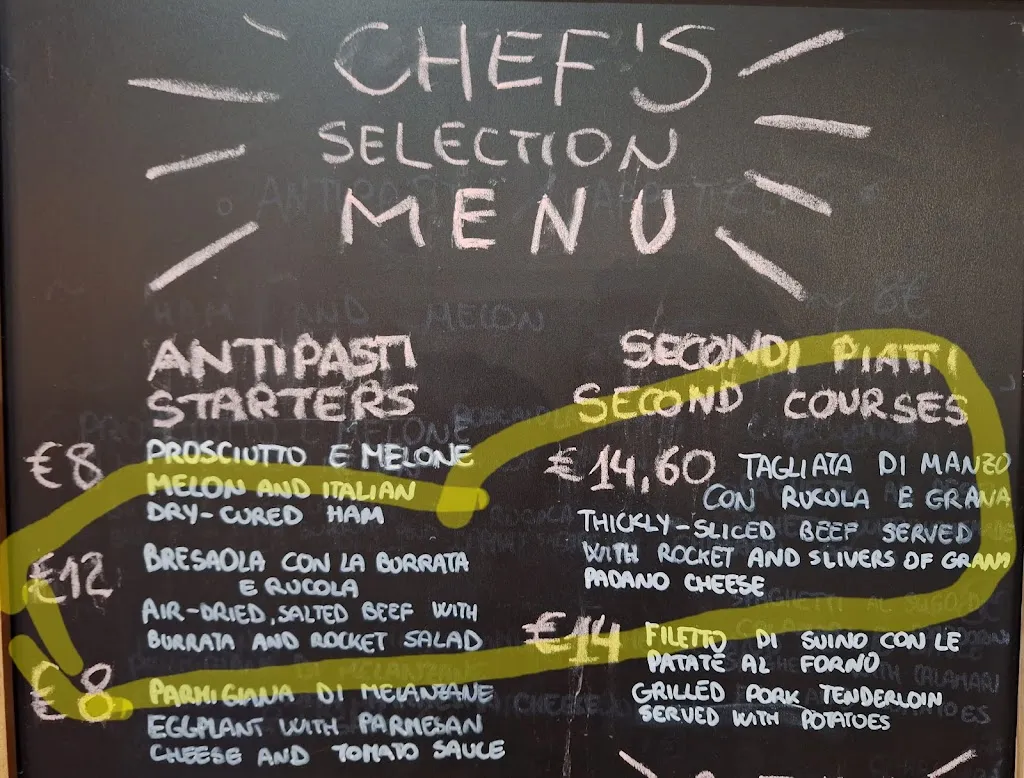 CHEF'S
SELECTION
MENU
ANTIPASTI
STARTERS
€8 PROSCIUTTO E MELONE
MELON AND ITALIAN
DRY-CURED HAM
€12 BRESAOLA CON LA BURRATA
E RUCOLA
AIR-DRIED, SALTED BEEF WITH
BURRATA AND ROCKET SALAD
€8 PARMIGIANA DI MELANZANE
EGGPLANT WITH PARMESAN
CHEESE AND TOMATO SAUCE
SECONDI PIATTI
SECOND COURSES
€14,60 TAGLIATA DI MANZO
CON RUCOLA E GRANA
THICKLY-SLICED BEEF SERVED
WITH ROCKET AND SLIVERS OF GRANA
PADANO CHEESE
€14 FILETTO DI SUINO CON LE
PATATE AL FORNO
GRILLED PORK TENDERLOIN
SERVED WITH POTATOES